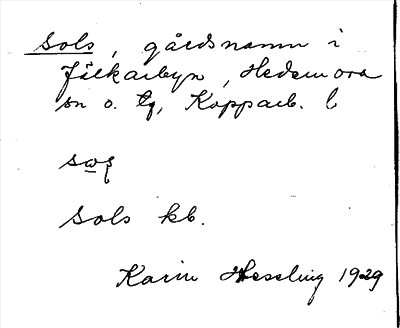 Sols, gårdsnamn i
Jälkarbyn, Hedemora
sn o. tg, Kopparb. l
Sols kb.
Karin Hessling 1929